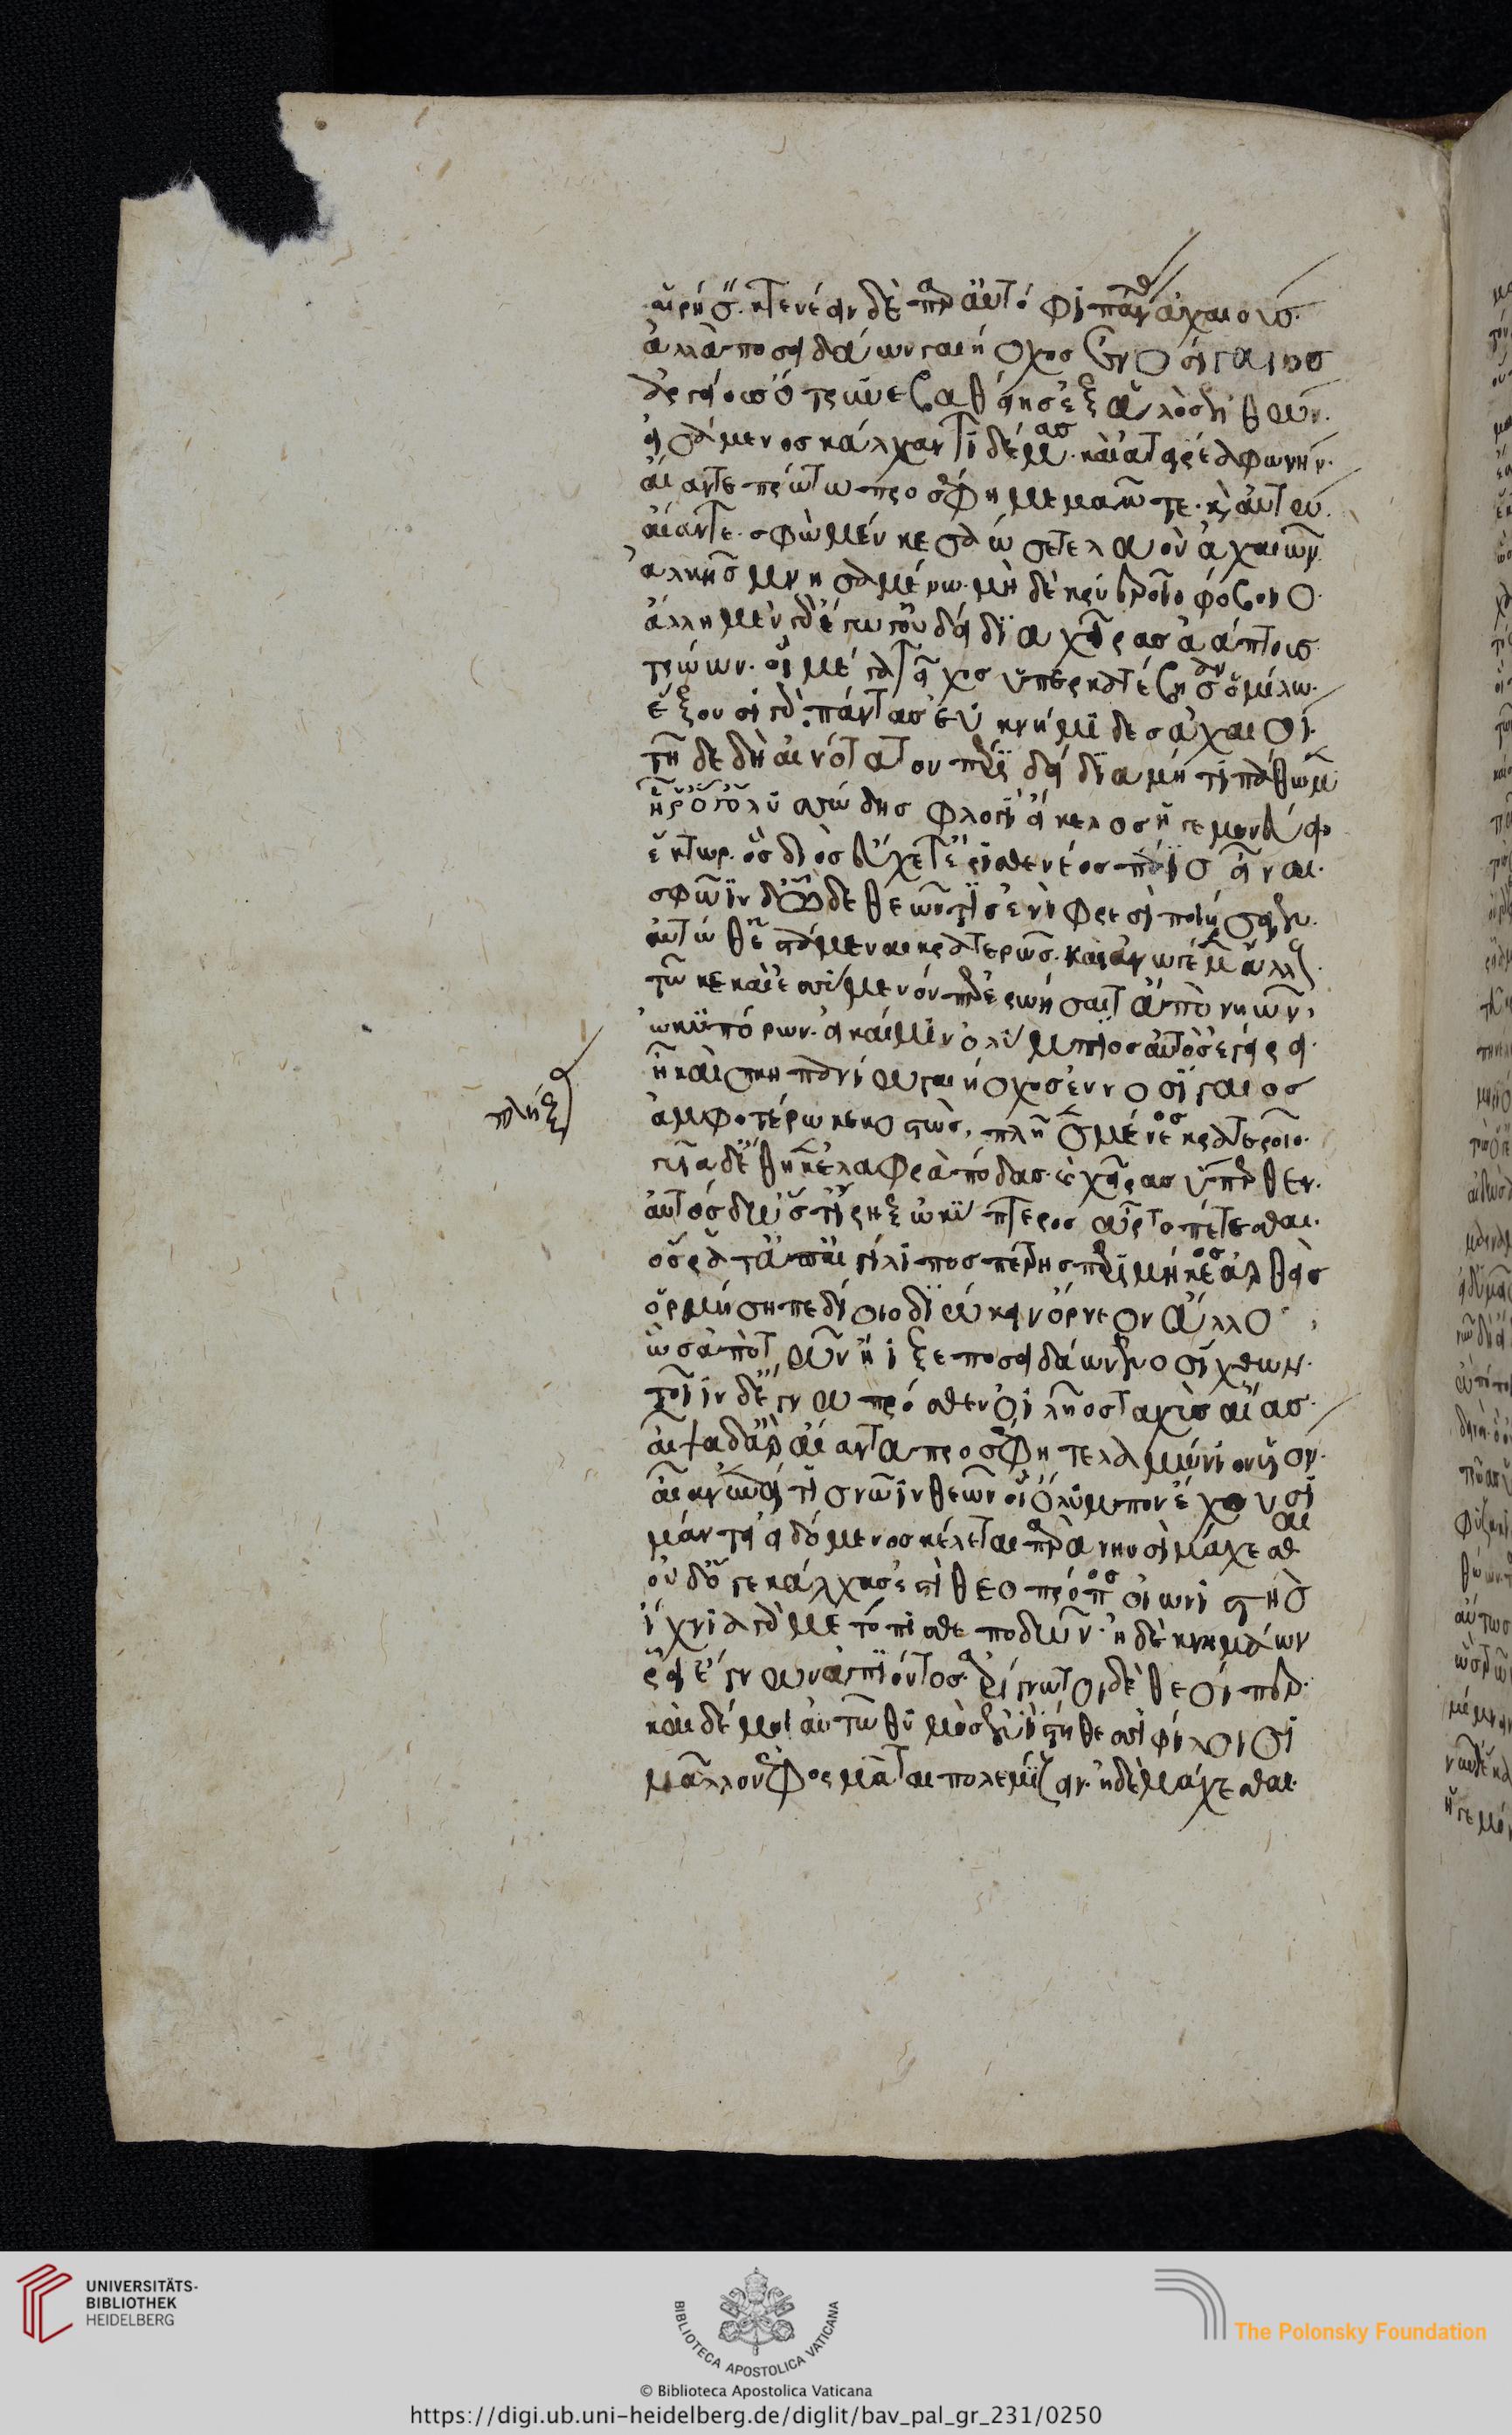 αἱρήσειν. κτενέειν δὲ παρ' αὐτόφι πάντας ἀχαιούς.
ἀλλὰ ποσειδάων γαιήοχος ἐννοσίγαιος
ἀργείους ὄτρυνε βαθείης ἐξ ἁλὸς ἐλθών.
εἰσάμενος κάλχαντι δέμας. καὶ ἀτειρέα φωνήν.
αἴαντε πρώτω προσέφη μεμαῶτε. καὶ αὐτώ.
αἴαντε. σφὼ μέν κε σαώσετε λαὸν ἀχαιῶν.
ἀλκῆς μνησαμένω. μὴ δὲ κρυεροῖο φόβοιο.
ἄλλη μὲν γὰρ ἔγωγ' οὐ δείδια χεῖρας ἀάπτους.
τρώων. οἳ μέγα τεῖχος ὑπερκατέβησαν ὁμίλω.
ἕξουσι γὰρ πάντας ἐϋκνήμιδες ἀχαιοί.
τῆ δὲ δὴ αἰνότατον περιδείδια μή τι πάθωμεν
ἧ ῥ' ὅ γ' ὁ λυσσώδης φλογὶ εἴκελος ἡγεμονεύει
ἕκτωρ. ὃς διὸς εὔχετ' ἐρισθενέος πάϊς εἶναι.
σφῶϊν δ' ὧδε θεῶν τὶς ἐνὶ φρεσὶ ποιήσειεν.
αὐτώ θ' ἑστάμεναι κρατερῶς. καὶ ἀνωγέμεν ἄλλους.
τῶ κε καὶ ἐσσύμενόν περ ἐρωήσαιτ' ἀπὸ νηῶν,
ὠκυπόρων. εἰ καί μιν ὀλύμπιος αὐτὸς ἐγείρει.
ἦ καὶ σκηπανίω γαιήοχος ἐννοσίγαιος
ἀμφοτέρω κεκοπὼς, πλῆσεν μένεος κρατεροῖο.
γυῖα δ' ἔθηκεν ἐλαφρὰ πόδας. καὶ χεῖρας ὕπερθεν.
αὐτὸς δ' ὥς τ' ἴρηξ ὠκύπτερος ὦρτο πέτεσθαι.
ὅς ῥά τ' ἀπ' αἰγίλιπος πέτρης περιμήκεος ἀρθεὶς
ὁρμήση πεδίοιο διώκειν ὄρνεον ἄλλο.
ὣς ἀπὸ τῶν ἤϊξε ποσειδάων ἐνοσίχθων.
τοῖϊν δ' ἔγνω πρόσθεν ὀϊλῆος ταχὺς αἴας.
αἶψα δ' ἄρ' αἴαντα προσέφη τελαμώνιον υἱόν.
αἶαν ἐπεί τις νῶϊν θεῶν οἳ ὄλυμπον ἔχουσι
μάντει εἰδόμενος κέλεται παρὰ νηυσὶ μάχεσθαι
οὐδ' ὅ γε κάλχας ἐστὶ θεοπρόπος οἰωνιστής
ἴχνια γὰρ μετόπισθε ποδῶν. ἠδὲ κνημάων
ῥεῖ' ἔγνων ἀπιόντος. ἀρίγνωτοι δὲ θεοί περ.
καὶ δέ μοι αὐτῶ θυμὸς ἐνὶ στήθεσσι φίλοισι
μᾶλλον ἐφορμᾶται πολεμίζειν. ἠδὲ μάχεσθαι.
UNIVERSITÄTS-
BIBLIOTHEK
HEIDELBERG
BIBLIOTECA APOSTOLICA VATICANA
The Polonsky Foundation
© Biblioteca Apostolica Vaticana
https://digi.ub.uni-heidelberg.de/diglit/bav_pal_gr_231/0250